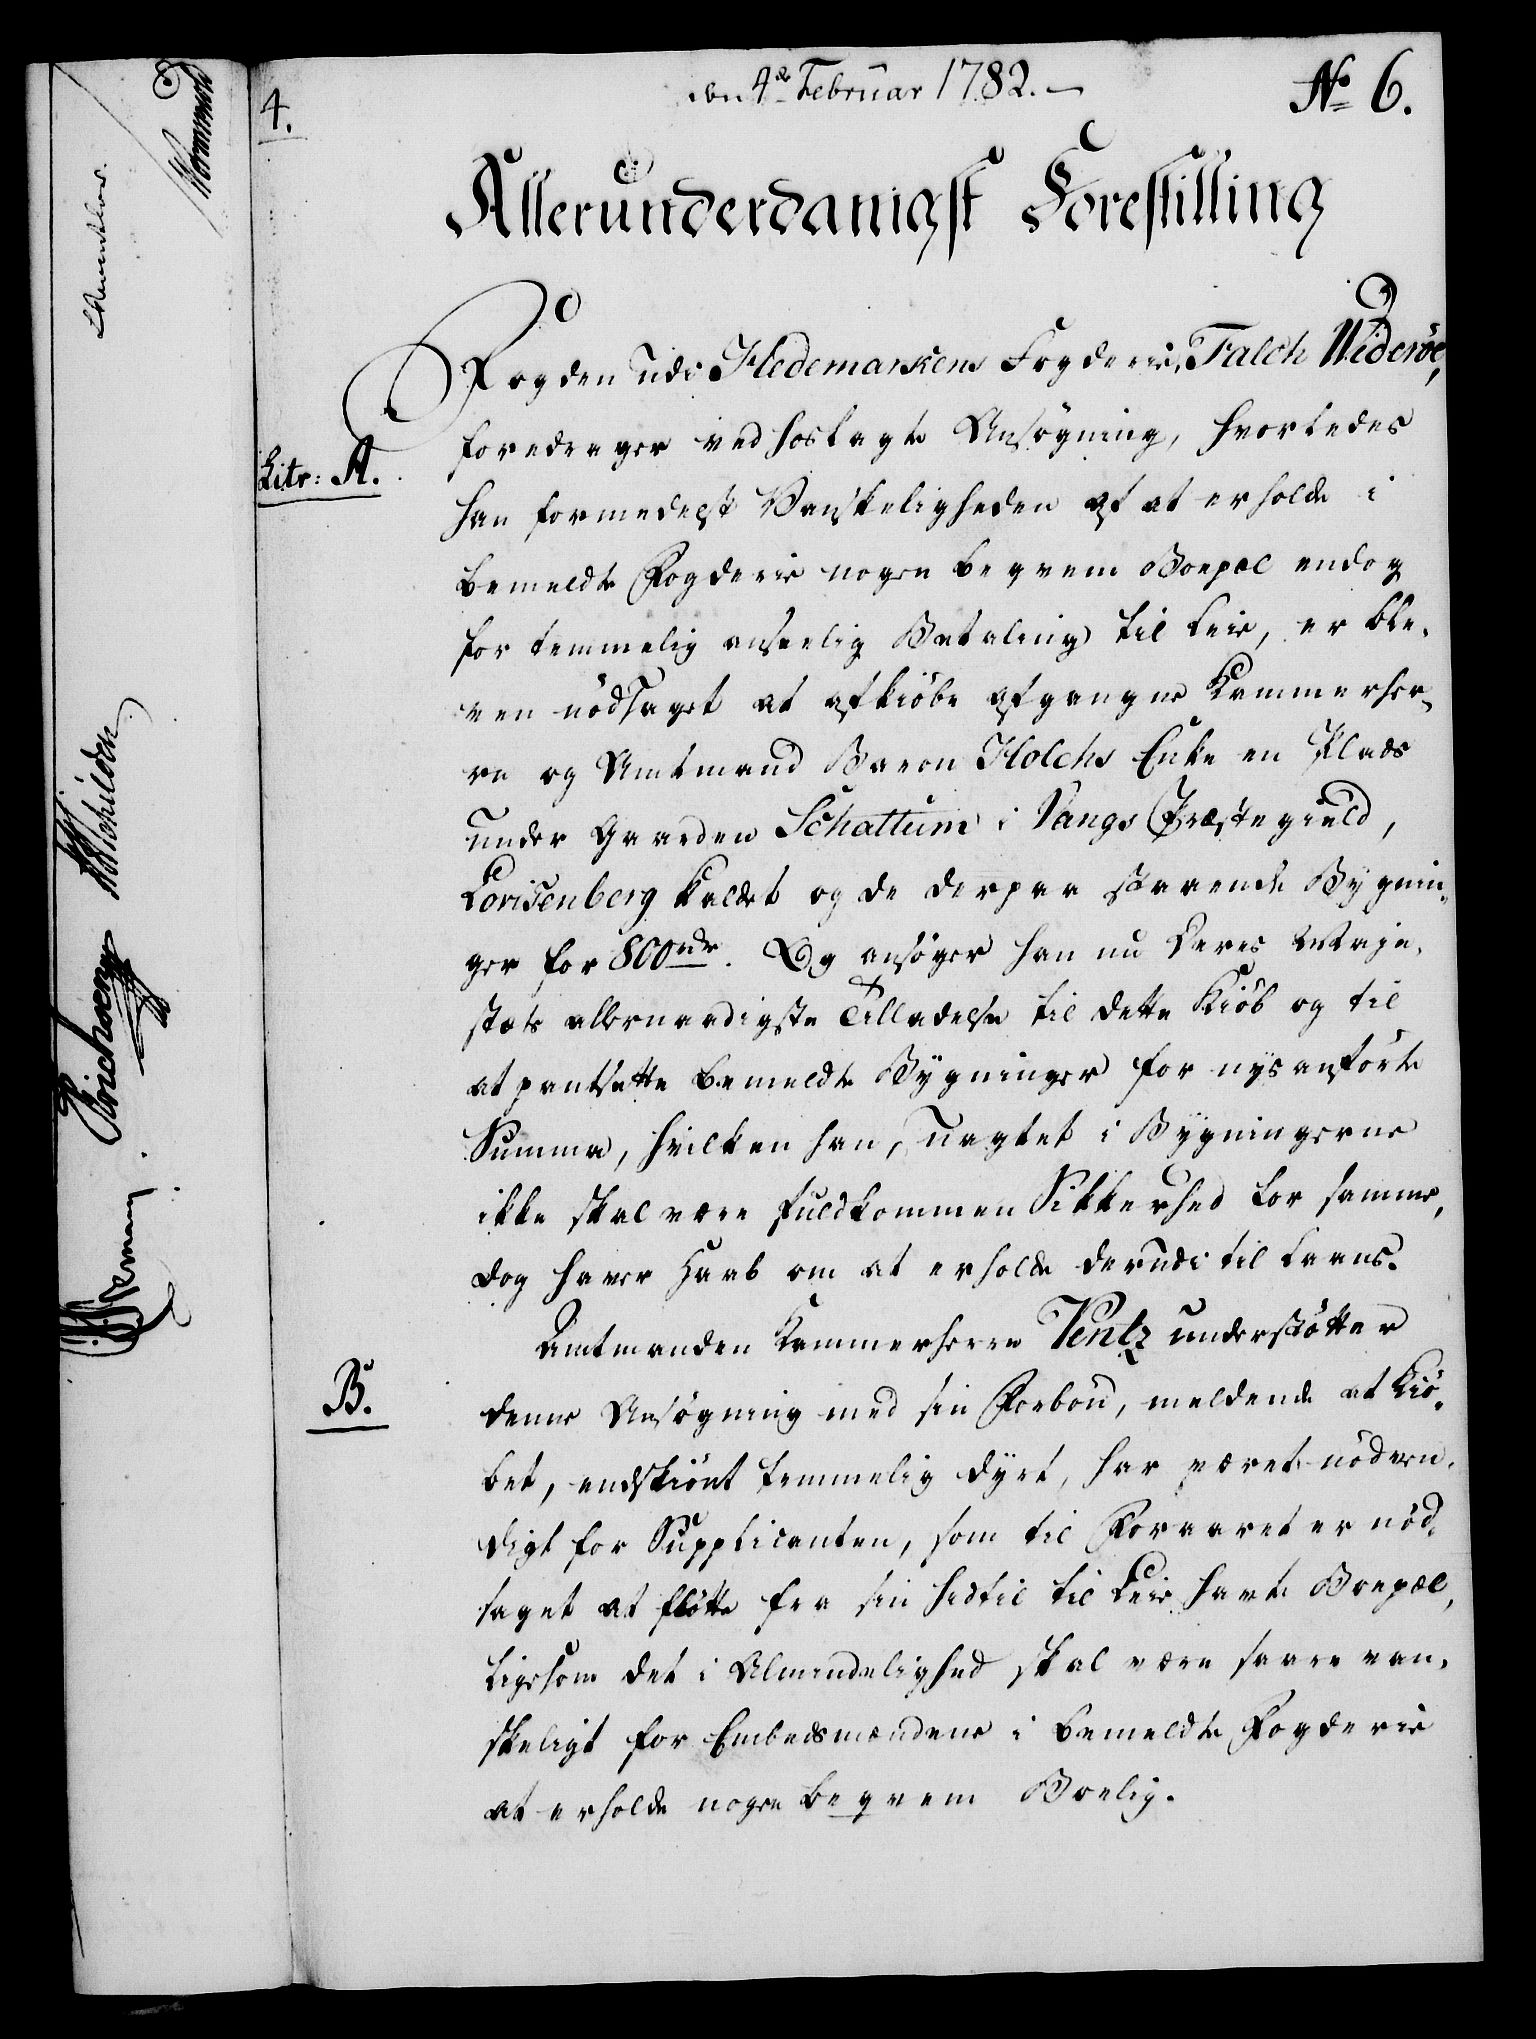 4.
den 4de Februar 1782.
No 6.
Allerunderdanigst Forestilling
Fogden udi Hedemarkens Fogderie, Falch Wideröe,
Litr: A.
foredrager ved hoslagte Ansögning, hvorledes
han formedelst Vanskeligheden af at erholde i
bemeldte Fogderie nogen beqvem Boepæl endog
for temmelig anseelig Betaling til Leie, er ble-
ven nödsaget at afkiöbe afgangne Kammerher-
re og Amtmand Baron Holchs Enke en Plads
under Gaarden Schattum i Vangs Præstegield,
Lovisenberg kaldet og de derpaa staaende Bygnin-
ger for 800 rdr. Og ansöger han nu Deres Maje-
stæts allernaadigste Tilladelse til dette Kiöb og til
at pantsætte bemeldte Bygninger for nysanförte
Summa, hvilken han, uagtet i Bygningerne
ikke skal være fuldkommen Sikkerhed for samme,
dog haver Haab om at erholde derudi til Laans.
Amtmanden Kammerherre Ventz understötter
B.
denne Ansögning med sin Forbön, meldende at Kiö-
bet, endskiönt temmelig dyrt, har været nödven-
digt for Supplicanten, som til Foraaret er nöd-
saget at flötte fra sin hidtil til Leie havte Boepæl,
ligesom det i Almindelighed skal være saare van-
skeligt for Embedsmændene i bemeldte Fogderie
at erholde nogen beqvem Boelig.